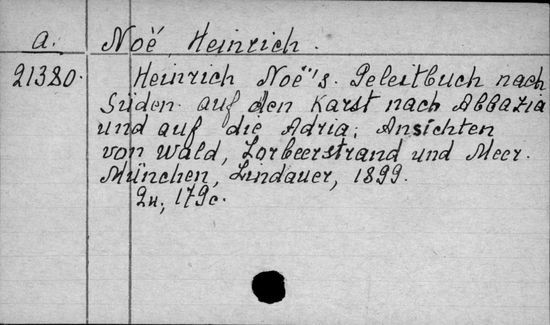 a. Noë, Heinrich.
21380. Heinrich Noë's. Geleitbuch nach
Süden. auf den Karst nach Abbazia
und auf die Adria; Ansichten
von Wald, Lorbeerstrand und Meer.
München, Lindauer, 1899.
2н, 179с.